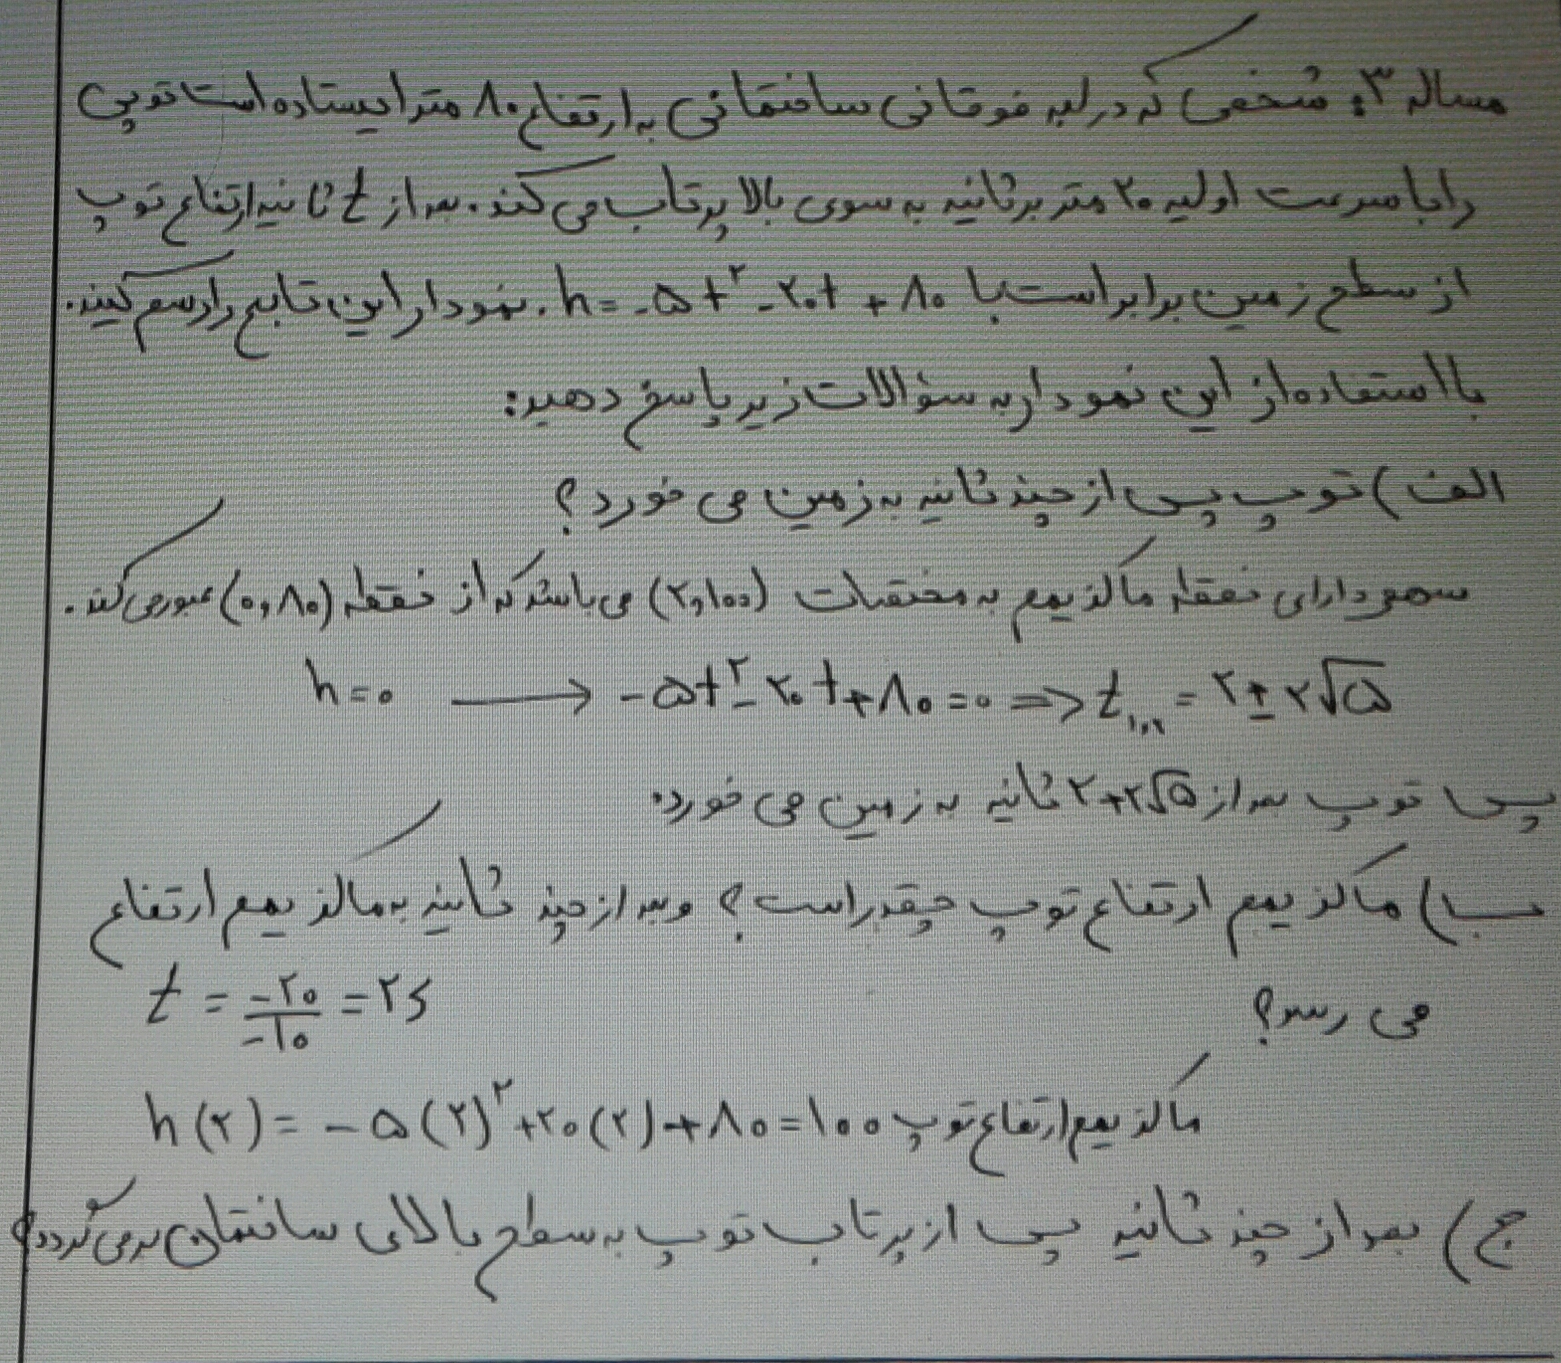 مساله ۳: شخصی که در لبه فوقانی ساختمانی به ارتفاع ۸۰ متر ایستاده است توپی
را با سرعت اولیه ۲۰ متر بر ثانیه به سوی بالا پرتاب می کند. بعد از t ثانیه ارتفاع توپ
از سطح زمین برابر است با h = -۵t^۲ - ۲۰t + ۸۰. نمودار این تابع را رسم کنید.
با استفاده از این نمودار به سؤالات زیر پاسخ دهید:
الف) توپ پس از چند ثانیه به زمین می خورد؟
سهمی دارای نقطه ماکزیمم به مختصات (۲,۱۰۰) می باشد که از نقطه (۰,۸۰) عبور می کند.
h = ۰ ⟶ -۵t^۲ - ۲۰t + ۸۰ = ۰ => t_۱,۲ = ۲ ± ۲√۵
پس توپ بعد از ۲+۲√۵ ثانیه به زمین می خورد.
ب) ماکزیمم ارتفاع توپ چقدر است؟ و بعد از چند ثانیه به ماکزیمم ارتفاع
می رسد؟ t = -۲۰/-۱۰ = ۲s
h(۲) = -۵(۲)^۲ + ۲۰(۲) + ۸۰ = ۱۰۰ ماکزیمم ارتفاع توپ
ج) بعد از چند ثانیه پس از پرتاب توپ به سطح بالای ساختمان برمی گردد؟